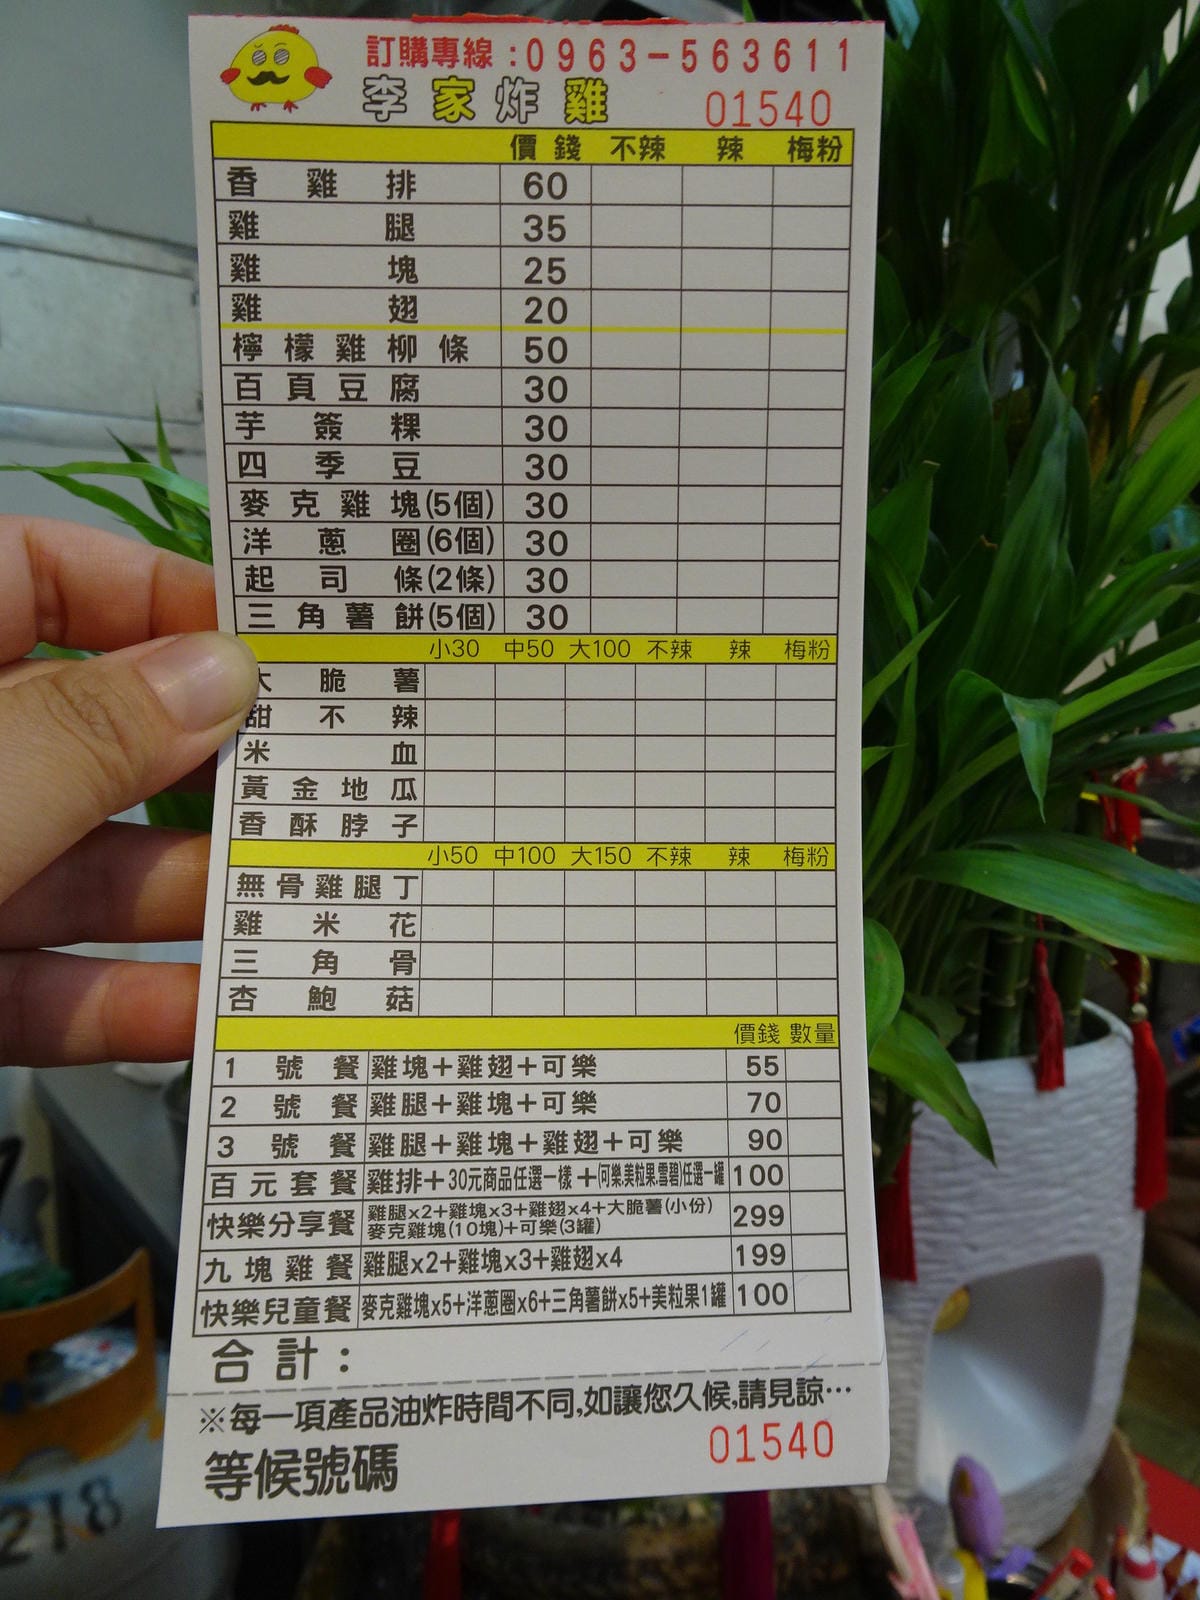 訂購專線：0963-563611
李家炸雞 01540
價錢 不辣 辣 梅粉
香雞排 60
雞腿 35
雞塊 25
雞翅 20
檸檬雞柳條 50
百頁豆腐 30
芋簽粿 30
四季豆 30
麥克雞塊(5個) 30
洋蔥圈(6個) 30
起司條(2條) 30
三角薯餅(5個) 30
小30 中50 大100 不辣 辣 梅粉
大脆薯
甜不辣
米血
黃金地瓜
香酥脖子
小50 中100 大150 不辣 辣 梅粉
無骨雞腿丁
雞米花
三角骨
杏鮑菇
價錢 數量
1號餐 雞塊+雞翅+可樂 55
2號餐 雞腿+雞塊+可樂 70
3號餐 雞腿+雞塊+雞翅+可樂 90
百元套餐 雞排+30元商品任選一樣+(可樂.美粒果.雪碧)任選一罐 100
快樂分享餐 雞腿x2+雞塊x3+雞翅x4+大脆薯(小份) 299
麥克雞塊(10塊)+可樂(3罐)
九塊雞餐 雞腿x2+雞塊x3+雞翅x4 199
快樂兒童餐 麥克雞塊x5+洋蔥圈x6+三角薯餅x5+美粒果1罐 100
合計：
※每一項產品油炸時間不同,如讓您久候,請見諒…
等候號碼 01540
218